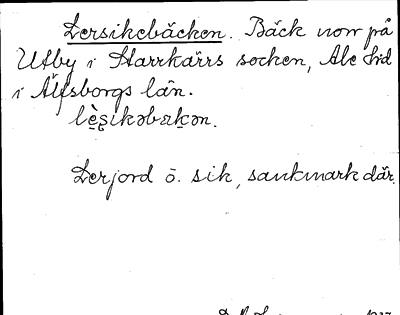 Lersikebäcken. Bäck norr på
Utby i Starrkärrs socken, Ale hd
i Älfsborgs län.
lès̩ikəbækən.
Lerjord o. sik, sankmark där.